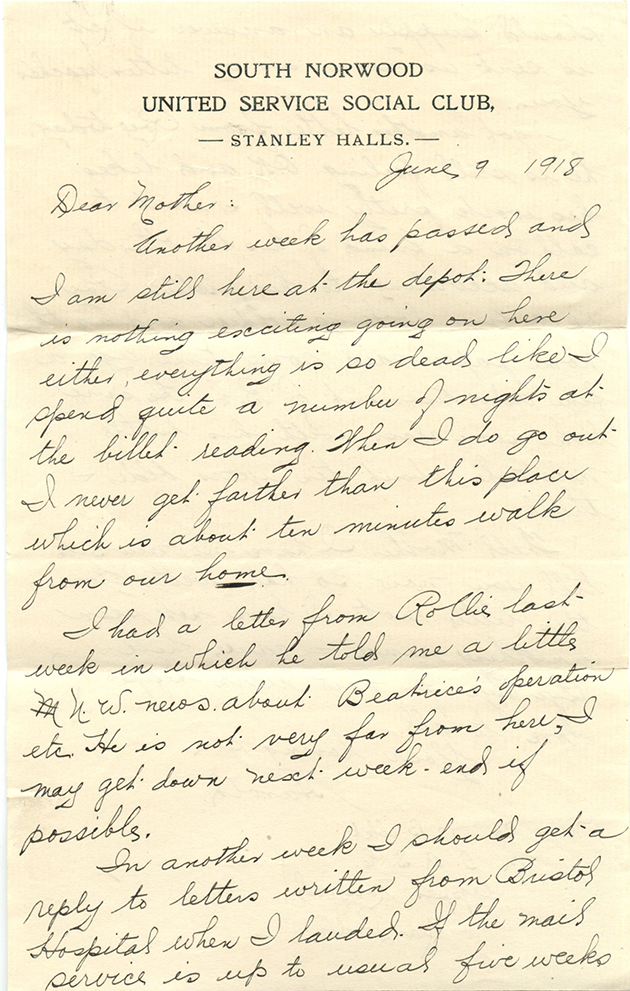 SOUTH NORWOOD
UNITED SERVICE SOCIAL CLUB,
— STANLEY HALLS. —
June 9 1918
Dear Mother:
Another week has passed and
I am still here at the depot. There
is nothing exciting going on here
either, everything is so dead like I
spend quite a number of nights at
the billet reading. When I do go out
I never get farther than this place
which is about ten minutes walk
from our home.
I had a letter from Rollie last
week in which he told me a little
N. W. news about Beatrice's operation
etc. He is not very far from here, I
may get down next week-end if
possible.
In another week I should get a
reply to letters written from Bristol
Hospital when I landed. If the mail
service is up to usual five weeks